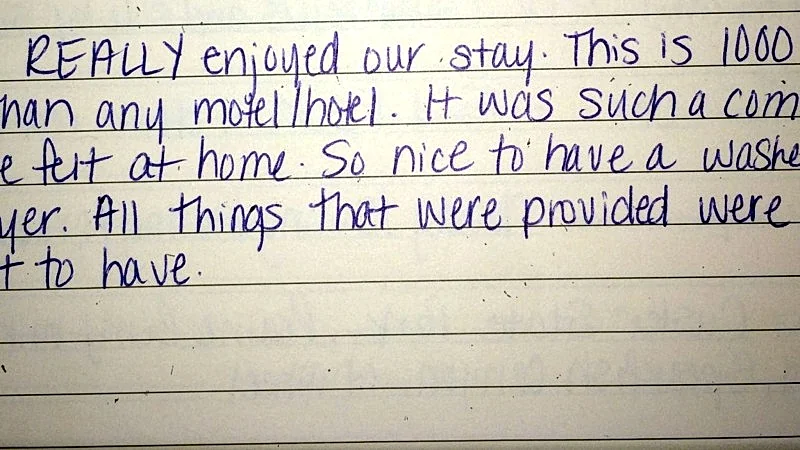 REALLY enjoyed our stay. This is 1000
han any motel/hotel. It was such a com
e felt at home. So nice to have a washe
yer. All things that were provided were
t to have.